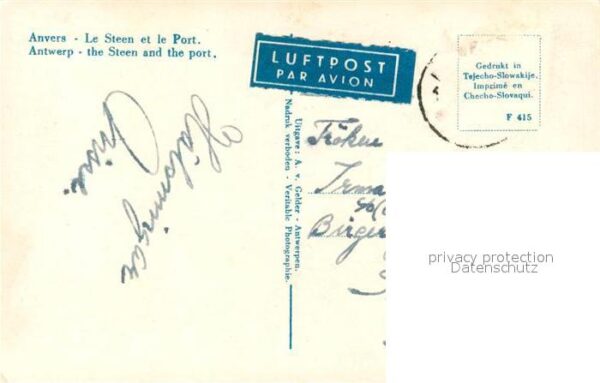 Anvers - Le Steen et le Port.
Antwerp - the Steen and the port.
LUFTPOST
PAR AVION
Gedrukt in
Tsjecho-Slowakije.
Imprimé en
Checho-Slovaqui.
F 415
Uitgave: A. v. Gelder - Antwerpen.
Nadruk verboden - Veritable Photographie.
Fröken
Irma
Birger
privacy protection
Datenschutz